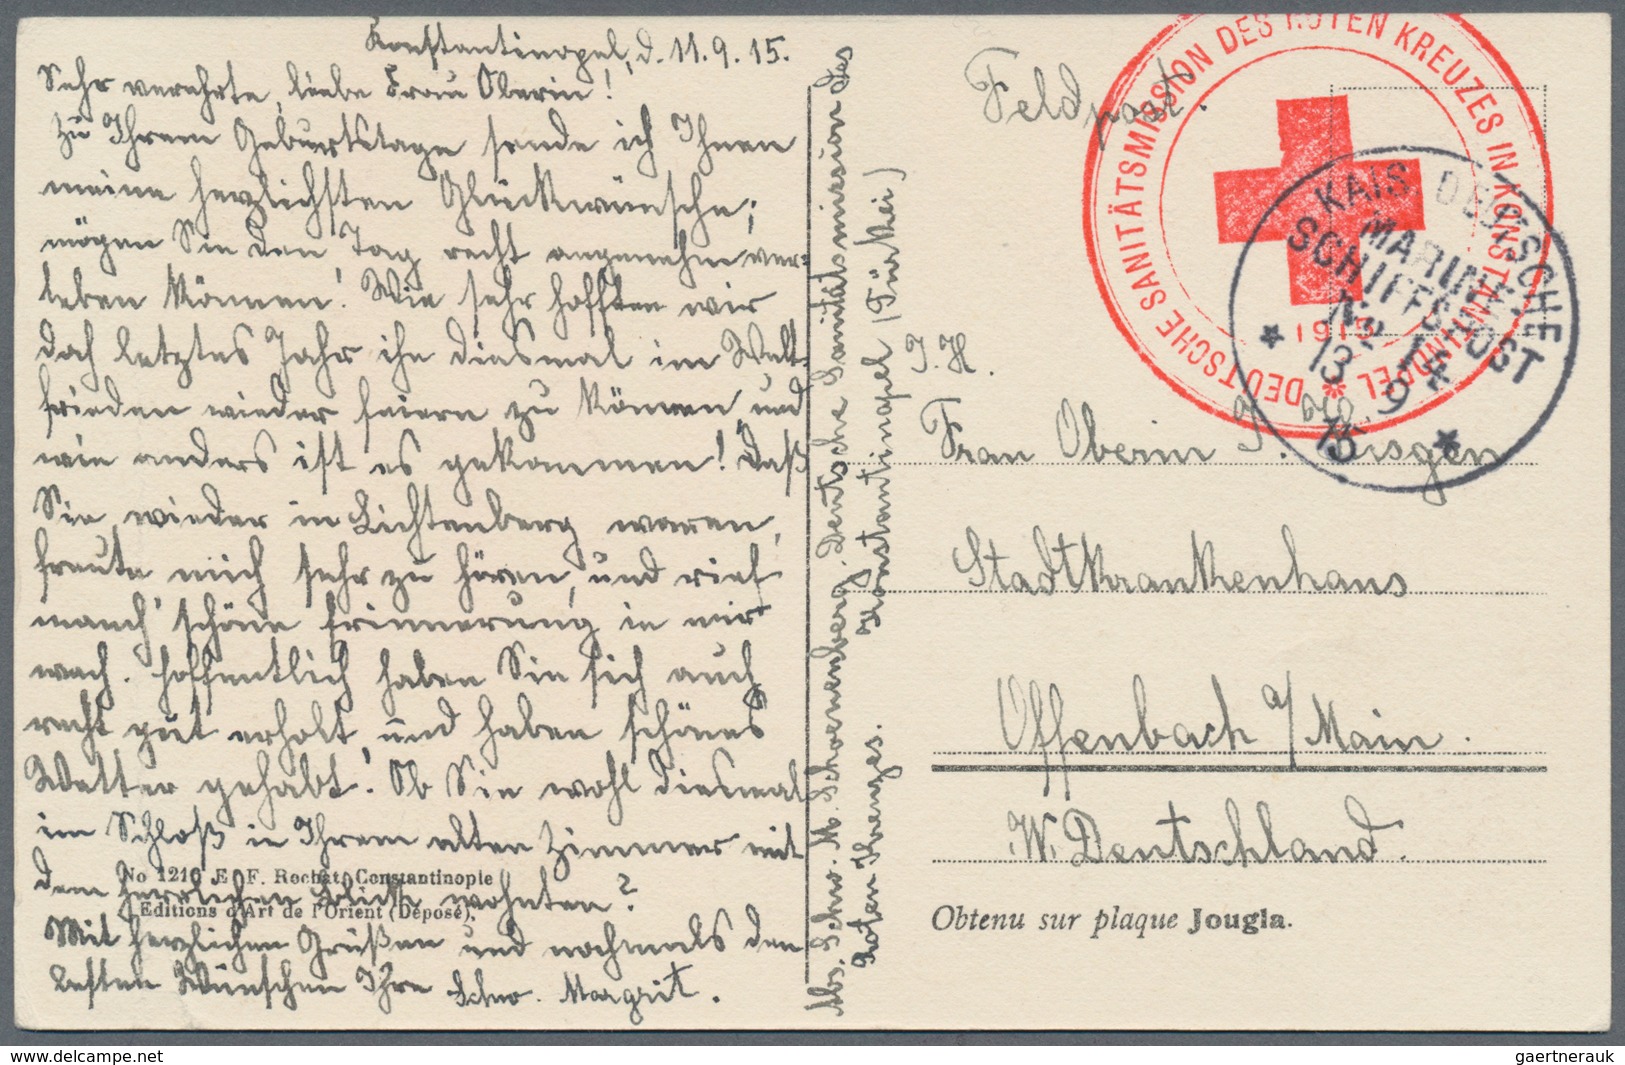 Konstantinopel, d. 11.9.15.
Sehr verehrte, liebe Frau Oberin!
Zu Ihrem Geburtstage sende ich Ihnen
meine herzlichsten Glückwünsche;
mögen Sie den Tag recht angenehm ver-
leben können! Wie sehr hofften wir
doch letztes Jahr ihn diesmal im Welt-
frieden wieder feiern zu können, und
wie anders ist es gekommen! Daß
Sie wieder in Lichtenberg waren,
freute mich sehr zu hören, und rief
manch' schöne Erinnerung in mir
wach. Hoffentlich haben Sie sich auch
recht gut erholt, und haben schönes
Wetter gehabt! Ob Sie wohl diesmal
im Schloß in Ihrem alten Zimmer mit
dem herrlichen Blick wohnten?
Mit herzlichen Grüßen und nochmals den
besten Wünschen Ihre Schw. Margrit.
No 1210 E. F. Rochat, Constantinople
Editions d'Art de l'Orient (Déposé).
Abs. Schw. M. Schoenenberg. Deutsche Sanitätsmission des
Roten Kreuzes. Konstantinopel (Türkei)
Feldpost.
DEUTSCHE SANITÄTSMISSION DES ROTEN KREUZES IN KONSTANTINOPEL
1915
KAIS. DEUTSCHE
MARINE-
SCHIFFSPOST
No 14
13 9
15
I. H.
Frau Oberin
Stadtkrankenhaus
Offenbach a/Main.
W. Deutschland.
Obtenu sur plaque Jougla.
www.delcampe.net
gaertnerauk